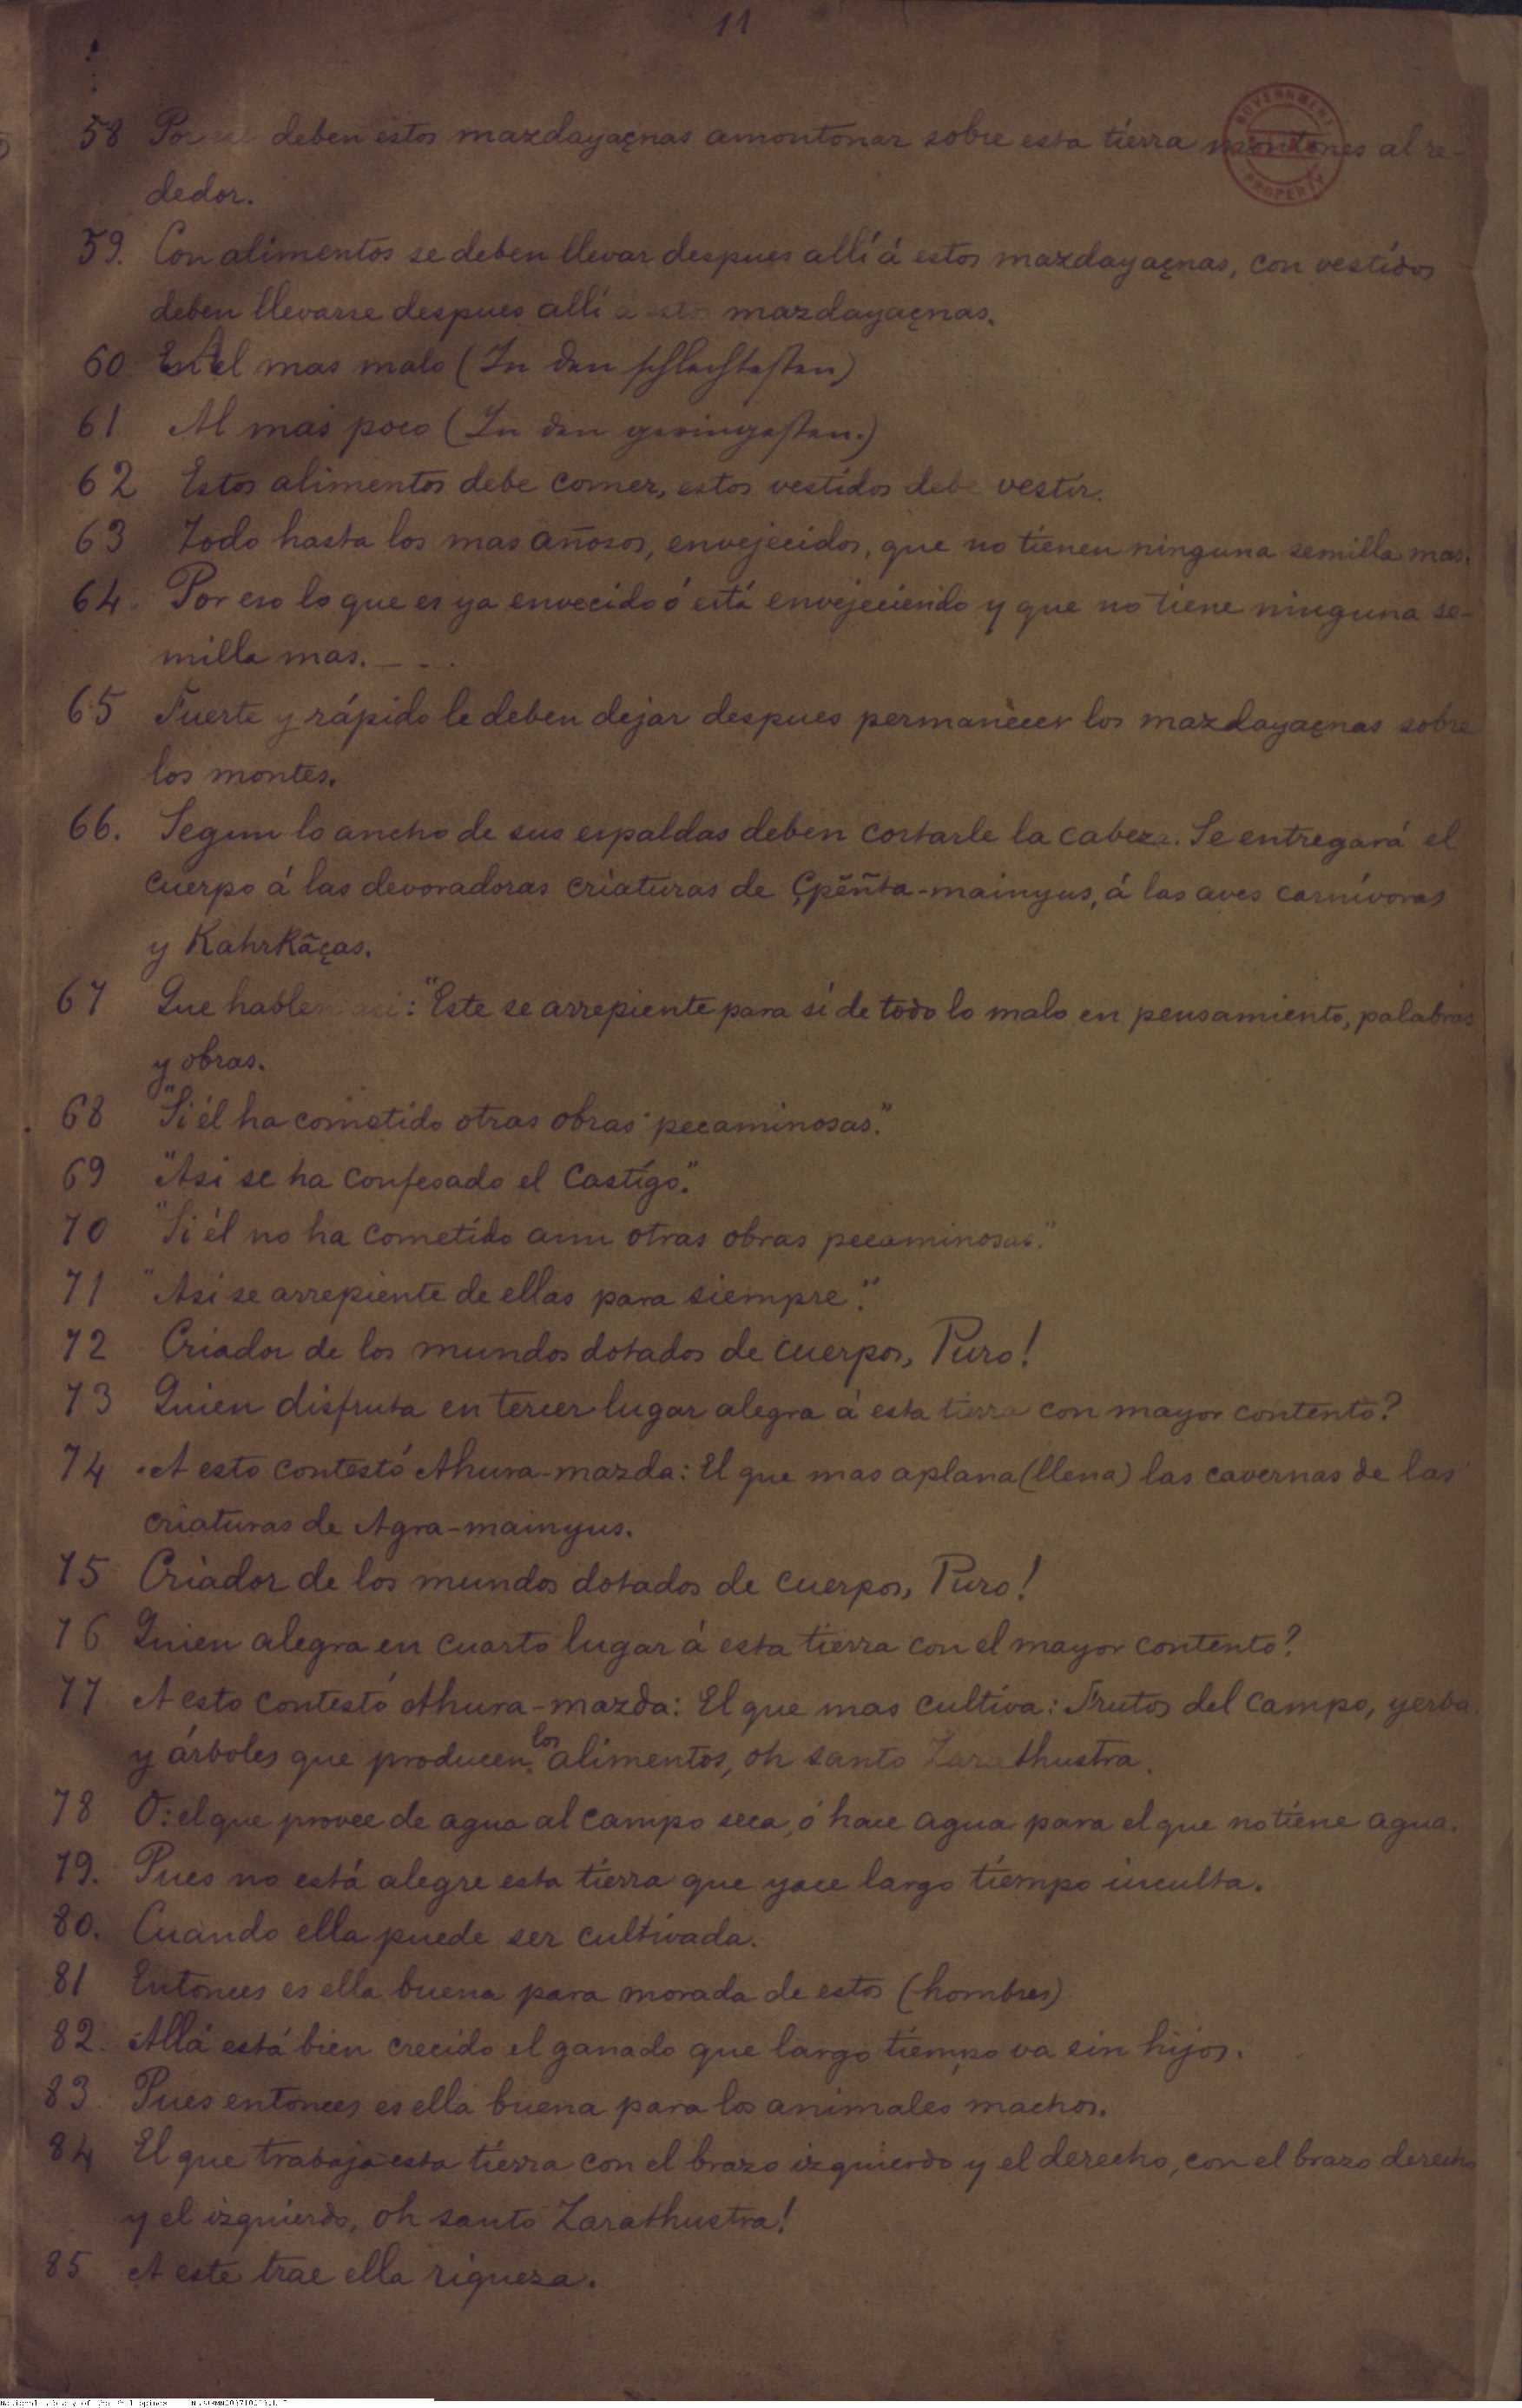 11
GOVERNMENT PROPERTY
58 Por deben estos mazdayaçnas amontonar sobre esta tierra montones al re-
dedor.
59. Con alimentos se deben llevar despues allí á estos mazdayaçnas, con vestidos
deben llevarse despues allí á estos mazdayaçnas.
60 En el mas malo (In den schlechtesten)
61 Al mas poco (In den geringsten.)
62 Estos alimentos debe comer, estos vestidos debe vestir.
63 Todo hasta los mas añosos, envejecidos, que no tienen ninguna semilla mas.
64. Por eso lo que es ya envecido ó está envejeciendo y que no tiene ninguna se-
milla mas. _ _ .
65 Fuerte y rápido le deben dejar despues permanecer los mazdayaçnas sobre
los montes.
66. Segun lo ancho de sus espaldas deben cortarle la cabeza. Se entregará el
cuerpo á las devoradoras criaturas de Çpẽñta-mainyus, á las aves carnívoras
y Kahrkãças.
67 Que hablen asi: "Este se arrepiente para sí de todo lo malo en pensamiento, palabras
y obras.
68 "Si él ha cometido otras obras pecaminosas."
69 "Asi se ha confesado el castigo."
70 "Si él no ha cometido aun otras obras pecaminosas."
71 "Asi se arrepiente de ellas para siempre."
72 Criador de los mundos dotados de cuerpos, Puro!
73 Quien disfruta en tercer lugar alegra á esta tierra con mayor contento?
74 A esto contestó Ahura-mazda: El que mas aplana (llena) las cavernas de las
criaturas de Agra-mainyus.
75 Criador de los mundos dotados de cuerpos, Puro!
76 Quien alegra en cuarto lugar á esta tierra con el mayor contento?
77 A esto contestó Ahura-mazda: El que mas cultiva: Frutos del campo, yerba
y árboles que producen los alimentos, oh santo Zarathustra.
78 O: el que provee de agua al campo seca, ó hace agua para el que no tiene agua.
79. Pues no está alegre esta tierra que yace largo tiempo inculta.
80. Cuando ella puede ser cultivada.
81 Entonces es ella buena para morada de estos (hombres)
82. Allá está bien crecido el ganado que largo tiempo va sin hijos.
83 Pues entonces es ella buena para los animales machos.
84 El que trabaja esta tierra con el brazo izquierdo y el derecho, con el brazo derecho
y el izquierdo, oh santo Zarathustra!
85 A este trae ella riqueza.